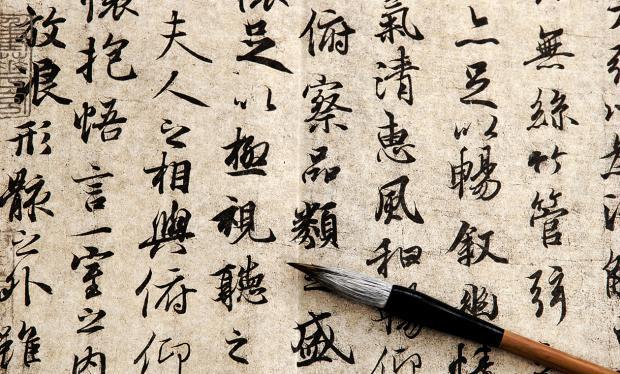 以為流觴
無絲竹管弦之
亦足以暢叙幽情
氣清惠風和暢仰
俯察品類之盛
懷足以極視聽之
夫人之相與俯仰
懷抱悟言一室之內
放浪形骸之外雖